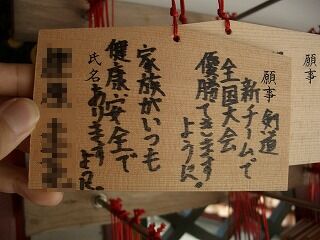 願事
剣道
新チームで
全国大会
優勝できます
ように。
家族がいつも
健康、安全で
ありますように。
氏名
願事